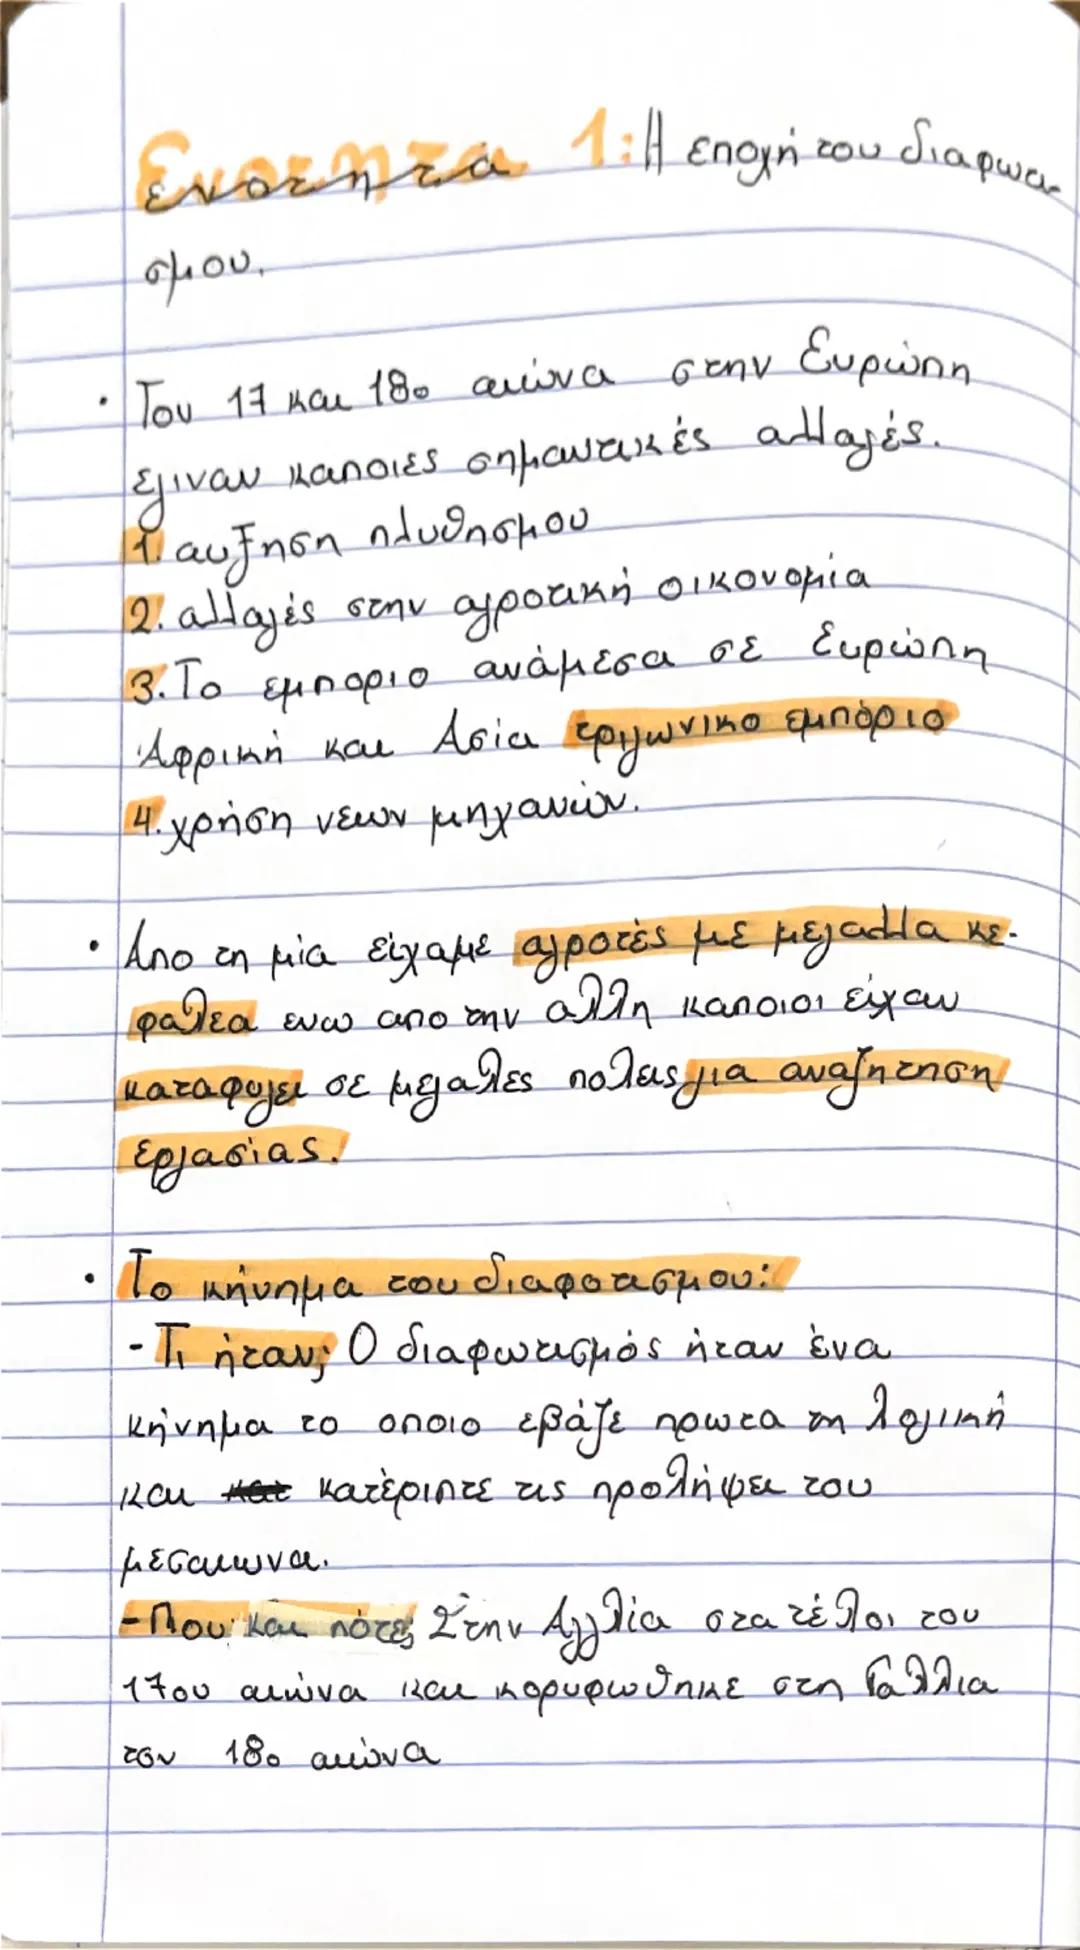 Ενότητα 1: Η εποχή του διαφωτι-
σμου.
• Τον 17 και 18ο αιώνα στην Ευρώπη
εγιναν καποιες σημαντικές αλλαγές.
1. αυξηση πλυθησμου
2. αλλαγές στην αγροτική οικονομία
3. Το εμποριο ανάμεσα σε Ευρώπη
Αφρική και Ασία τριγωνικο εμπόριο
4. χρήση νεων μηχανών.
• Απο τη μία είχαμε αγροτές με μεγαλλα κε-
φαλεα ενω απο την αλλη καποιοι είχαν
καταφυγει σε μεγαλες πολεις για αναζητηση
εργασίας.
• Το κήνημα του διαφοτισμου:
- Τι ήταν; Ο διαφωτισμός ήταν ένα
κήνημα το οποιο εβάζε πρωτα τη λογική
και κατέριπτε τις προλήψει του
μεσαιωνα.
- Που και πότε; Στην Αγγλία στα τέλοι του
17ου αιώνα και κορυφωθηκε στη Γαλλια
τον 18ο αιώνα